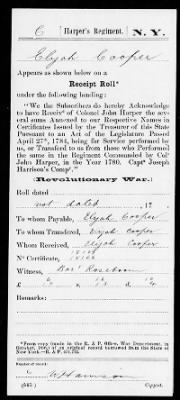 C Harper's Regiment. N.Y.
Elijah Cooper
Appears as shown below on a
Receipt Roll*
under the following heading:
"We the Subscribers do hereby Acknowledge
to have Receiv'd of Colonel John Harper the sev-
eral sums Annexed to our Respective Names in
Certificates Issued by the Treasurer of this State
Pursuant to an Act of the Legislature Passed
April 27th, 1784, being for Service performed by
us, or Transfer'd to us from those who Performed
the same in the Regiment Commanded by Col°
John Harper, in the Year 1780. Capt° Joseph
Harrison's Comp°."
(Revolutionary War.)
Roll dated
not dated, 17
To whom Payable, Elijah Cooper
To whom Transfered, Elijah Cooper
Whom Received, Elijah Cooper
N° Certificate,
Witness,
£
Remarks:
*From copy (made in the R. & P. Office, War Department, in
Number of record:
(565) Copyist.